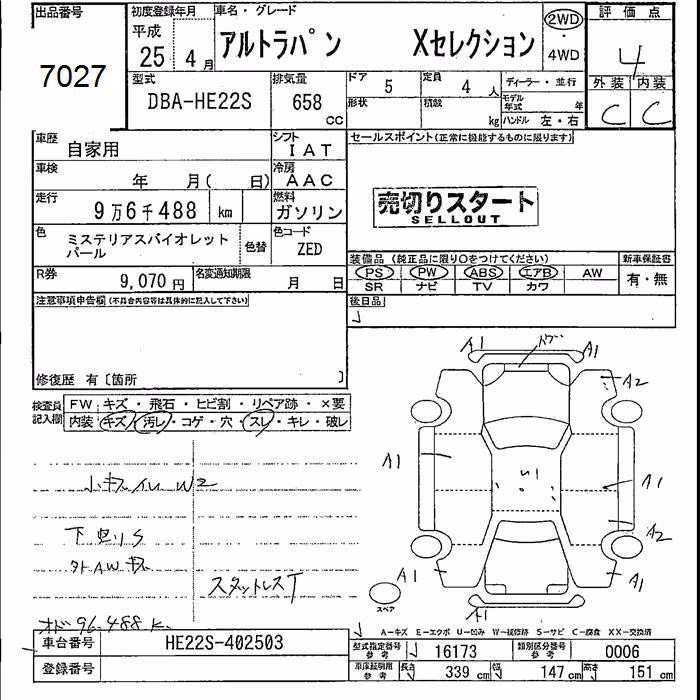 出品番号
7027
初度登録年月
平成
25年 4月
車名・グレード
アルトラパン Xセレクション
2WD
・
4WD
評価点
4
外装 内装
C C
型式
DBA-HE22S
排気量
658
CC
ドア 5
定員 4人
形状
積載 kg
ディーラー・並行
モデル年式 年
ハンドル 左・右
車歴
自家用
シフト
IAT
車検
年 月( 日)
冷房
AAC
走行
9万6千488 km
燃料
ガソリン
色
ミステリアスバイオレット
パール
色替
色コード
ZED
R券
9,070円
名変通知期限
月 日
セールスポイント(正常に機能するものに限ります)
売切りスタート
SELLOUT
装備品(純正品に限り○をつけてください)
新車保証書
PS PW ABS エアB AW
有・無
SR ナビ TV カワ
後日品
注意事項申告欄(不具合内容等は具体的に記入して下さい)
修復歴 有〔箇所 〕
検査員
記入欄
FW キズ・飛石・ヒビ割・リペア跡・×要
内装 キズ・汚レ・コゲ・穴・スレ・キレ・破レ
W2
下回りS
外AWキズ
スタットレスT
オド 96.488 K
A1
A1
A2
A1
A1
U1
A2
A1
A1
A1
スペア
A-キズ E-エクボ U-凹み W-補修跡 S-サビ C-腐食 XX-交換済
車台番号
HE22S-402503
登録番号
型式指定番号
参考
16173
類別区分番号
参考
0006
車体証明用
参考
長さ 339 cm
幅 147 cm
高さ 151 cm